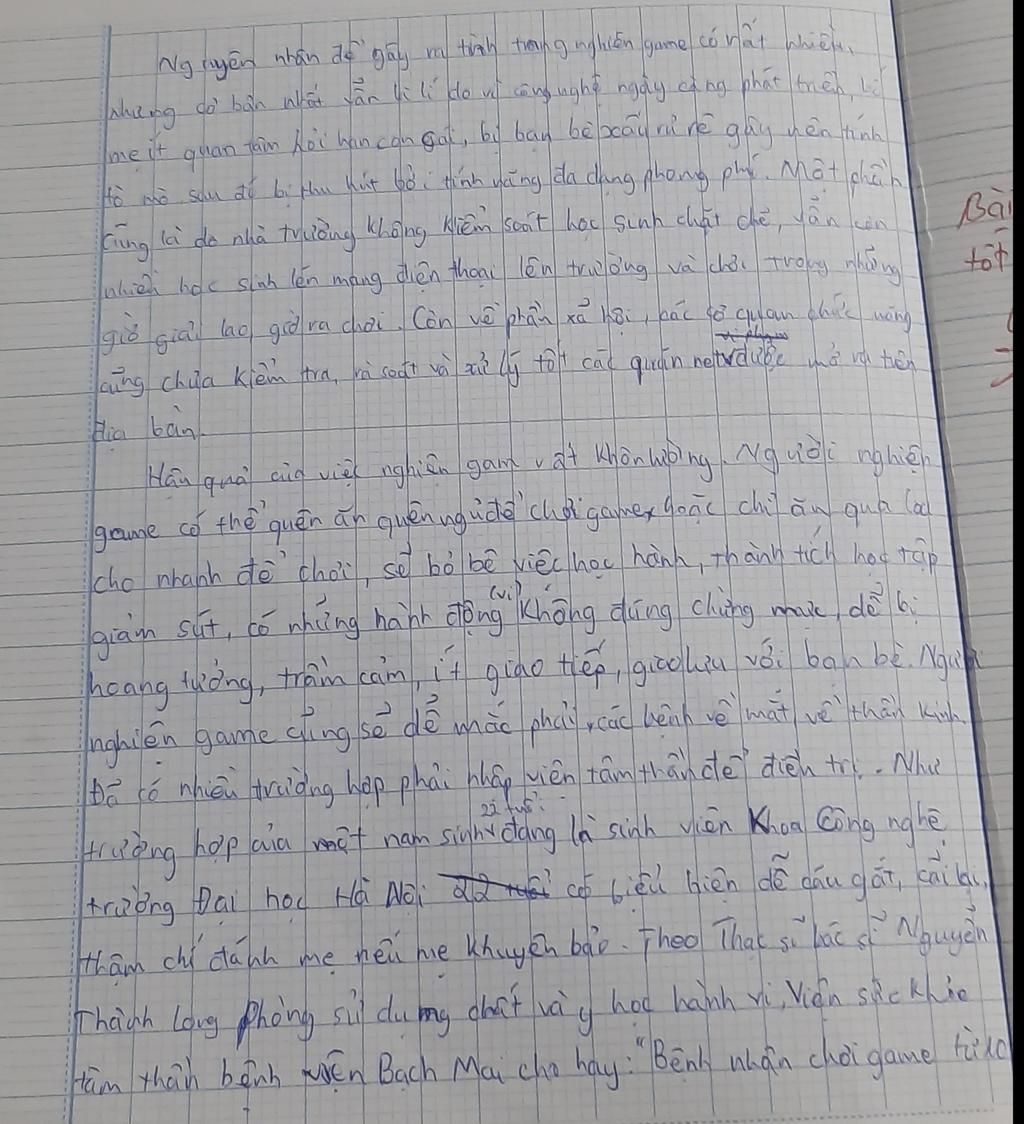 Nguyên nhân để gây ra tình trạng nghiện game có rất nhiều,
nhưng cơ bản nhất vẫn là lí do vì công nghệ ngày càng phát triển, bố
mẹ ít quan tâm hỏi han con cái, bị bạn bè xấu rủ rê gây nên tính
tò mò sau đó bị thu hút bởi tính năng đa dạng phong phú. Một phần
cũng là do nhà trường không kiểm soát học sinh chặt chẽ, vẫn còn
nhiều học sinh lén mang điện thoại lên trường và chơi trong những
giờ giải lao, giờ ra chơi. Còn về phần xã hội, các cơ quan chức năng
cũng chưa kiểm tra, rà soát và xử lý tốt các quán net được mở ra trên
địa bàn.
Hậu quả của việc nghiện gam rất khôn lường. Người nghiện
game có thể quên ăn quên ngủ để chơi game, hoặc chỉ ăn qua loa
cho nhanh để chơi, sẽ bỏ bê việc học hành, thành tích học tập
giảm sút, có những hành động (vi) không đúng chừng mực, dễ bị
hoang tưởng, trầm cảm, ít giao tiếp, giao lưu với bạn bè. Người
nghiện game cũng sẽ dễ mắc phải các bệnh về mắt, về thần kinh.
Đã có nhiều trường hợp phải nhập viện tâm thần để điều trị. Như
trường hợp của một nam sinh 22 tuổi đang là sinh viên Khoa Công nghệ
trường Đại học Hà Nội có biểu hiện dễ cáu gắt, cãi lại,
thậm chí đánh mẹ nếu mẹ khuyên bảo. Theo Thạc sĩ bác sĩ Nguyễn
Thành Long Phòng sử dụng chất và y học hành vi, Viện sức khỏe
tâm thần bệnh viện Bạch Mai cho hay: "Bệnh nhân chơi game từ
Bài
tốt